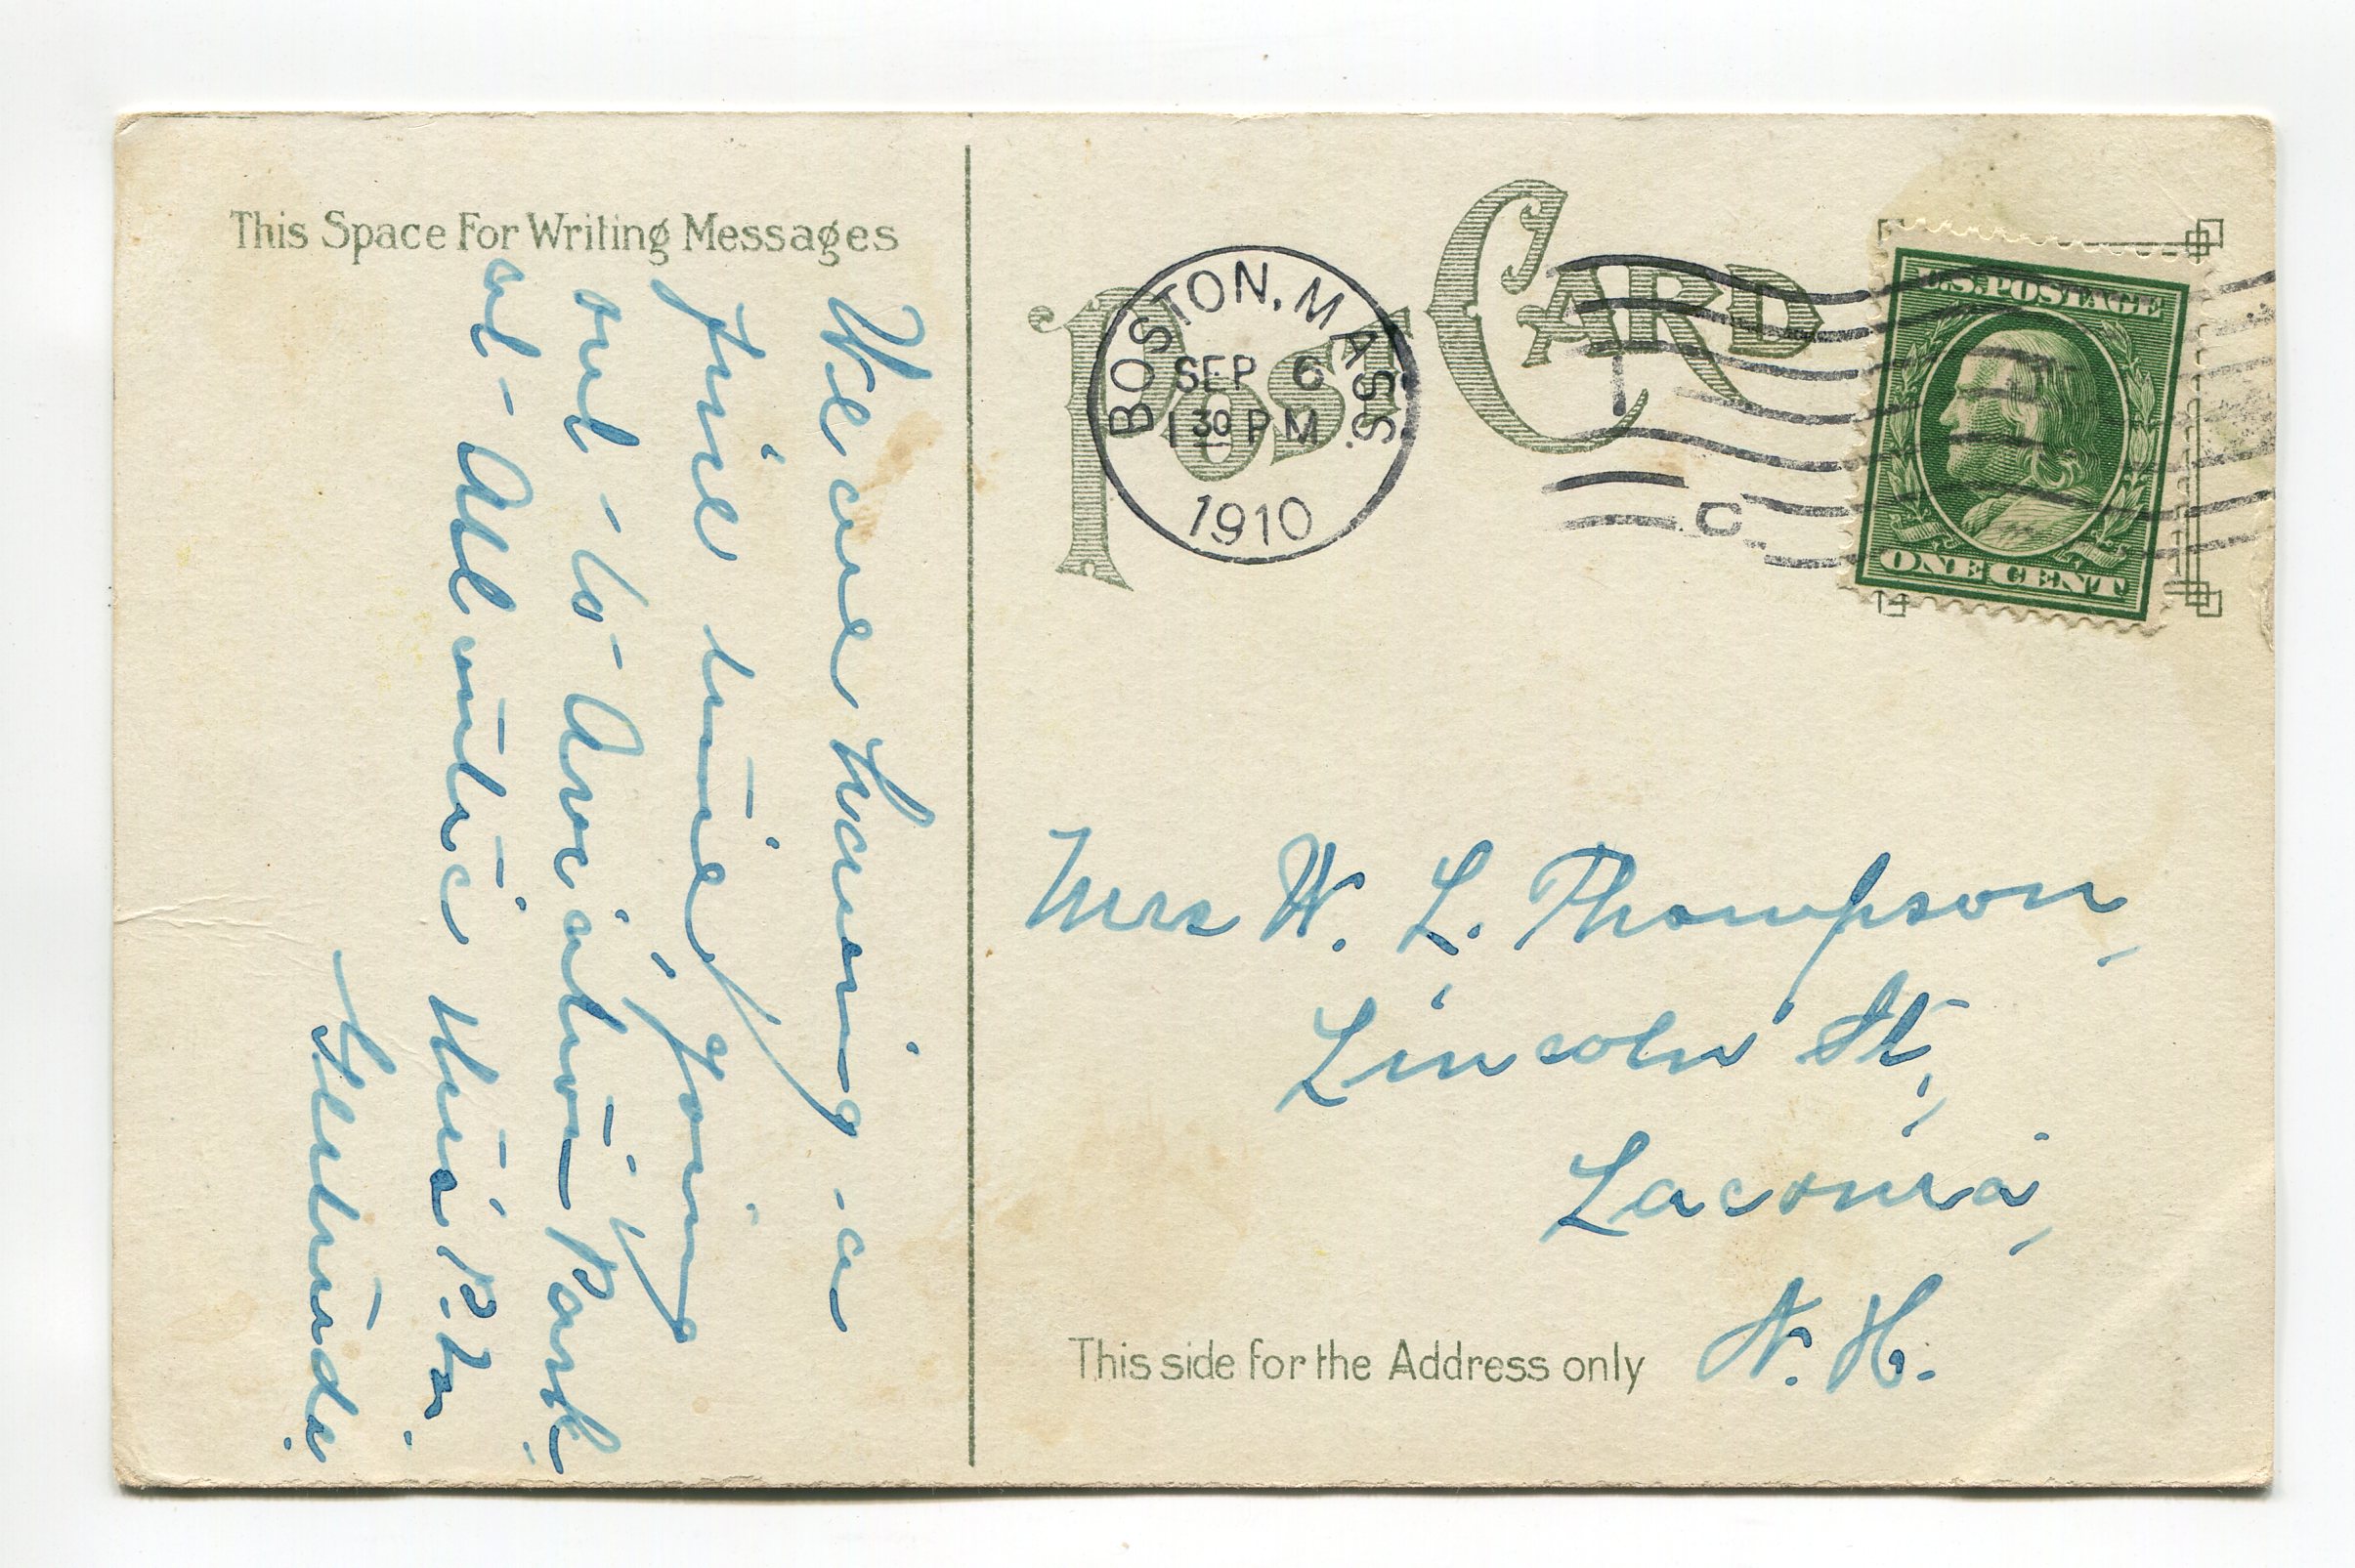 This Space For Writing Messages
We are having a
fine time, going
out to Aviation Park
at Atlantic this P.M.
Gertrude.
POST CARD
BOSTON, MASS.
SEP 6
1 30 PM
1910
C
U.S. POSTAGE
ONE CENT
Mrs W. L. Thompson,
Lincoln St,
Laconia,
N. H.
This side for the Address only